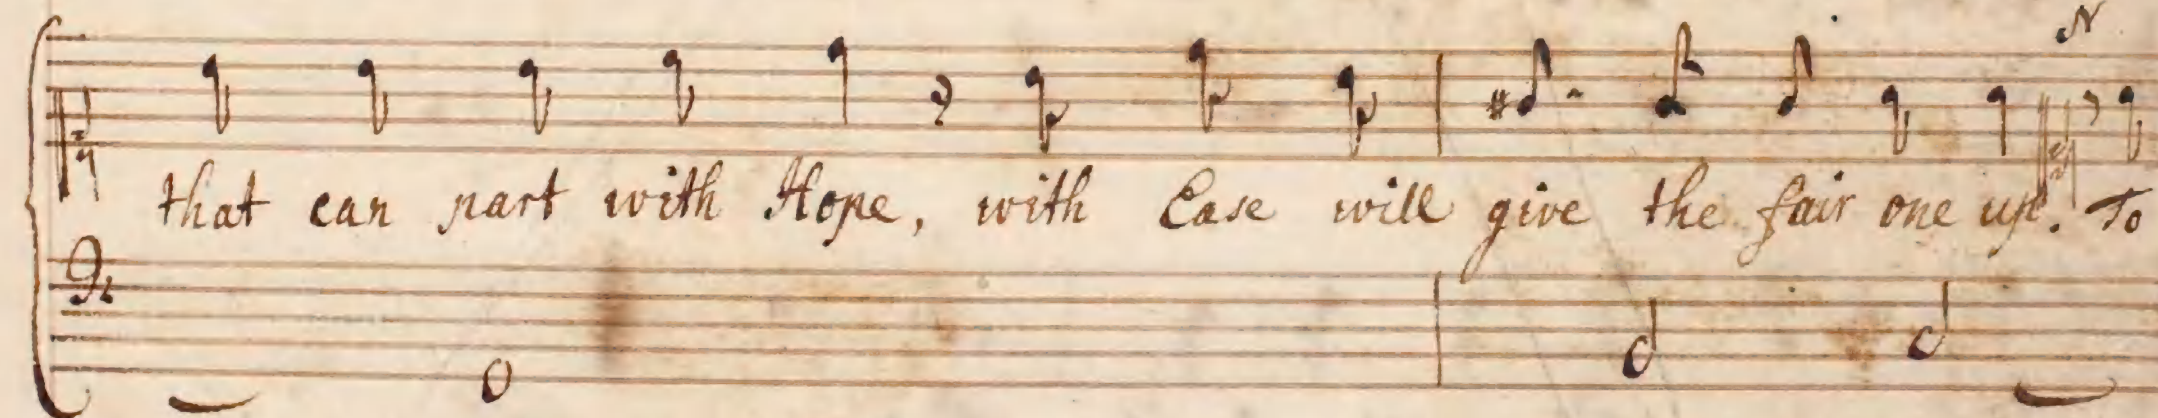 N
that can part with Hope, with Ease will give the fair one up. To